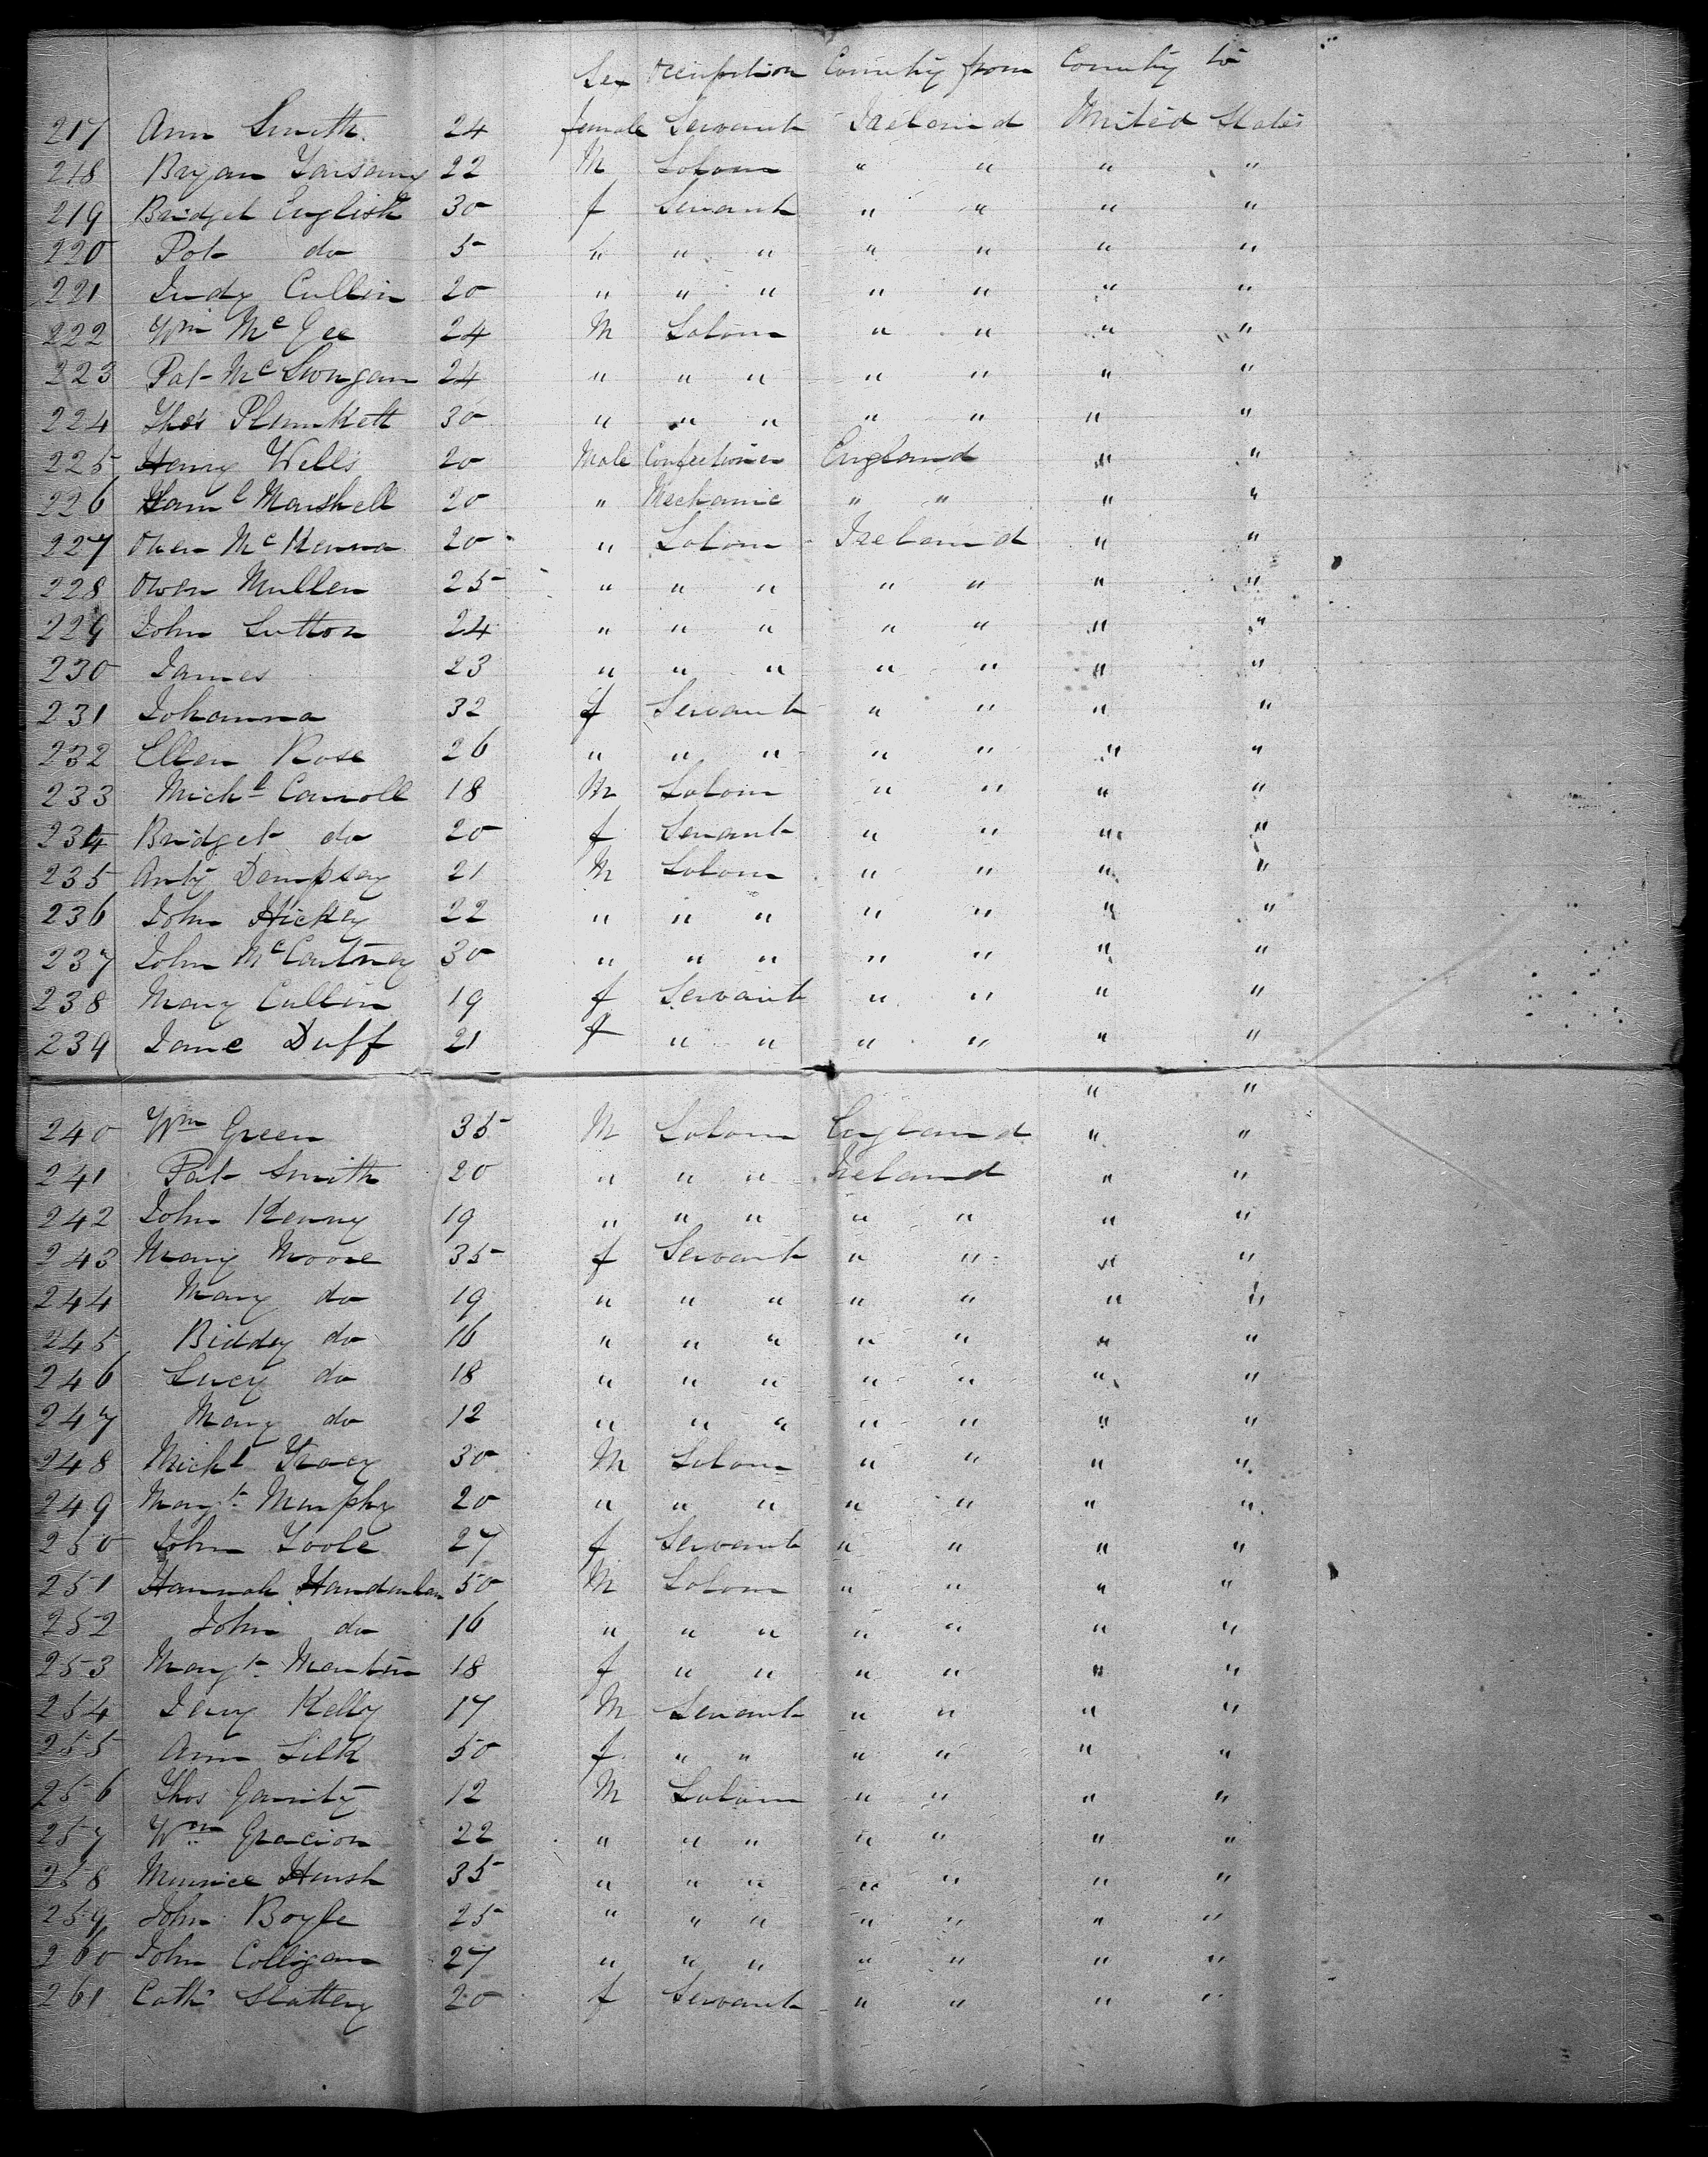 Sex Occupation Country from Country to
217 Ann Smith 24 female Servant Ireland United States
218 Bryan 22 M Labour " " " "
219 Bridget English 30 f Servant " " " "
220 Pat do 5 " " " " " " "
221 Judy Cullin 20 " " " " " " "
222 Wm McGee 24 M Labour " " " "
223 Pat 24 " " " " " " "
224 Thos Plunkett 30 " " " " " " "
225 Henry Wells 20 Male Confectioner England " "
226 Saml Marshell 20 " Mechanic " " " "
227 Owen McKenna 20 " Labour Ireland " "
228 Owen Mullen 25 " " " " " " "
229 John Sutton 24 " " " " " " "
230 James 23 " " " " " " "
231 Johanna 32 f Servant " " " "
232 Ellen Rose 26 " " " " " " "
233 Michl Carroll 18 M Labour " " " "
234 Bridget do 20 f Servant " " " "
235 Anty Dempsey 21 M Labour " " " "
236 John Hickey 22 " " " " " " "
237 John McCartney 30 " " " " " " "
238 Mary Cullin 19 f Servant " " " "
239 Jane Duff 21 f " " " " " "
" "
240 Wm Green 35 M Labour England " "
241 Pat Smith 20 " " " Ireland " "
242 John Kenny 19 " " " " " " "
243 Mary Moore 35 f Servant " " " "
244 Mary do 19 " " " " " " "
245 Biddy do 16 " " " " " " "
246 Lucy do 18 " " " " " " "
247 Mary do 12 " " " " " " "
248 Michl Tracy 30 M Labour " " " "
249 Margt Murphy 20 " " " " " " "
250 John Toole 27 f Servant " " " "
251 Hannah 50 M Labour " " " "
252 John do 16 " " " " " " "
253 Margt Martin 18 f " " " " " "
254 Jerry Kelly 17 M Servant " " " "
255 Ann Silk 50 f " " " " " "
256 Thos Garrity 12 M Labour " " " "
257 Wm Gracion 22 " " " " " " "
258 35 " " " " " " "
259 John Boyle 25 " " " " " " "
260 John Colligan 27 " " " " " " "
261 Cath Slattery 20 f Servant " " " "